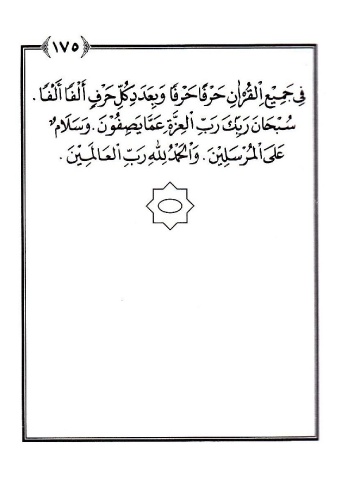 ١٧٥
فِي جَمِيْعِ الْقُرْاٰنِ حَرْفًا حَرْفًا وَبِعَدَدِ كُلِّ حَرْفٍ أَلْفًا أَلْفًا .
سُبْحَانَ رَبِّكَ رَبِّ الْعِزَّةِ عَمَّا يَصِفُوْنَ . وَسَلَامٌ
عَلَى الْمُرْسَلِيْنَ . وَالْحَمْدُ لِلّٰهِ رَبِّ الْعَالَمِيْنَ .